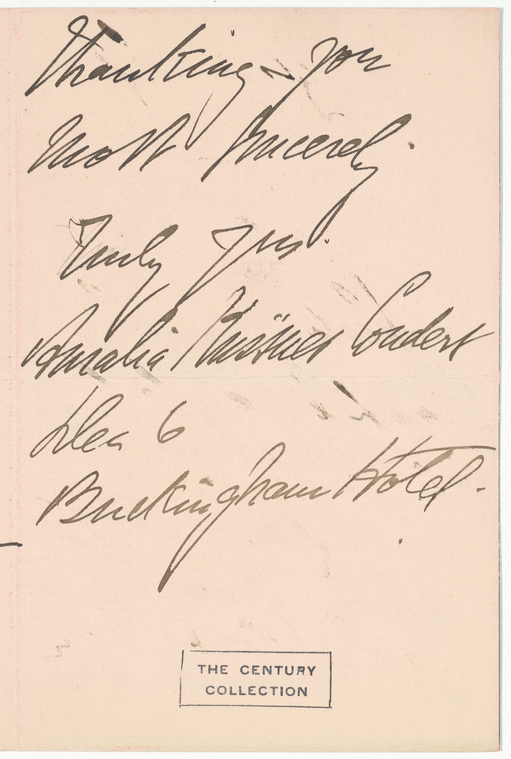 Thanking you
Most Sincerely.
Truly yrs.
Amalia Küssner Coudert
Dec 6
Buckingham Hotel.
THE CENTURY
COLLECTION